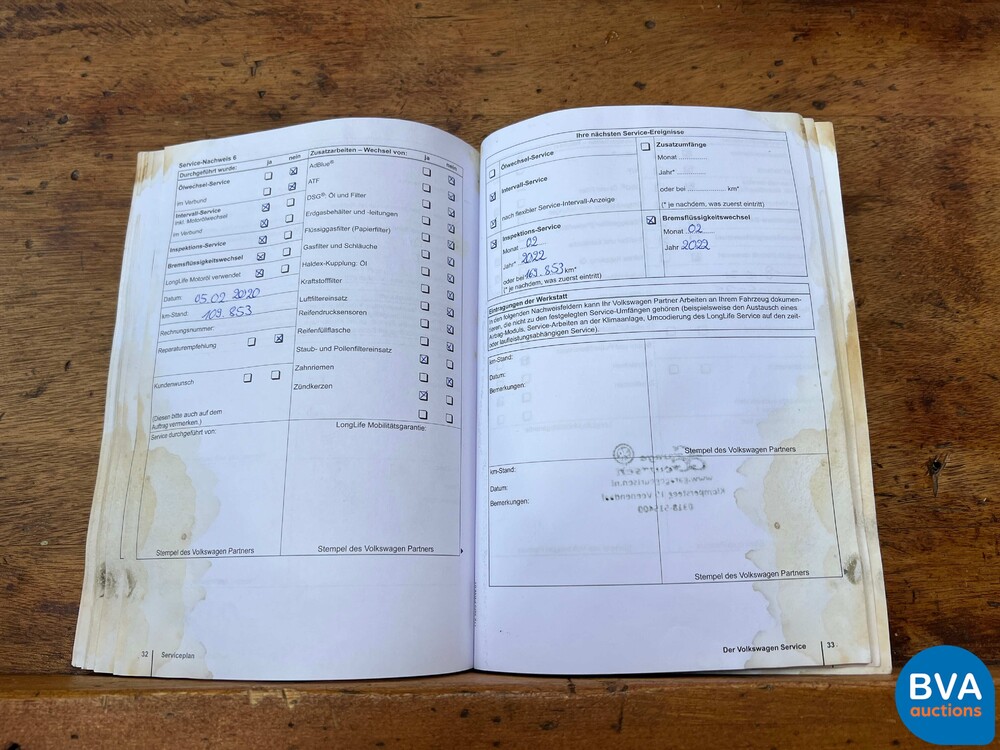 Service-Nachweis 6
Durchgeführt wurde: ja nein
Ölwechsel-Service
im Verbund
Intervall-Service
inkl. Motorölwechsel
im Verbund
Inspektions-Service
Bremsflüssigkeitswechsel
LongLife Motoröl verwendet
Datum: 05.02 2020
km-Stand: 109.853
Rechnungsnummer:
Reparaturempfehlung
Kundenwunsch
(Diesen bitte auch auf dem
Auftrag vermerken.)
Service durchgeführt von:
Stempel des Volkswagen Partners
Zusatzarbeiten – Wechsel von: ja nein
AdBlue®
ATF
DSG®: Öl und Filter
Erdgasbehälter und -leitungen
Flüssiggasfilter (Papierfilter)
Gasfilter und Schläuche
Haldex-Kupplung: Öl
Kraftstofffilter
Luftfiltereinsatz
Reifendrucksensoren
Reifenfüllflasche
Staub- und Pollenfiltereinsatz
Zahnriemen
Zündkerzen
LongLife Mobilitätsgarantie:
Stempel des Volkswagen Partners
32 Serviceplan
Ihre nächsten Service-Ereignisse
Ölwechsel-Service
Intervall-Service
nach flexibler Service-Intervall-Anzeige
Inspektions-Service
Monat 02
Jahr* 2022
oder bei 169.853 km*
(* je nachdem, was zuerst eintritt)
Zusatzumfänge
Monat
Jahr*
oder bei km*
(* je nachdem, was zuerst eintritt)
Bremsflüssigkeitswechsel
Monat 02
Jahr 2022
Eintragungen der Werkstatt
In den folgenden Nachweisfeldern kann Ihr Volkswagen Partner Arbeiten an Ihrem Fahrzeug dokumen-
tieren, die nicht zu den festgelegten Service-Umfängen gehören (beispielsweise den Austausch eines
Airbag-Moduls, Service-Arbeiten an der Klimaanlage, Umcodierung des LongLife Service auf den zeit-
oder laufleistungsabhängigen Service).
km-Stand:
Datum:
Bemerkungen:
Stempel des Volkswagen Partners
km-Stand:
Datum:
Bemerkungen:
Stempel des Volkswagen Partners
Der Volkswagen Service 33
BVA
auctions